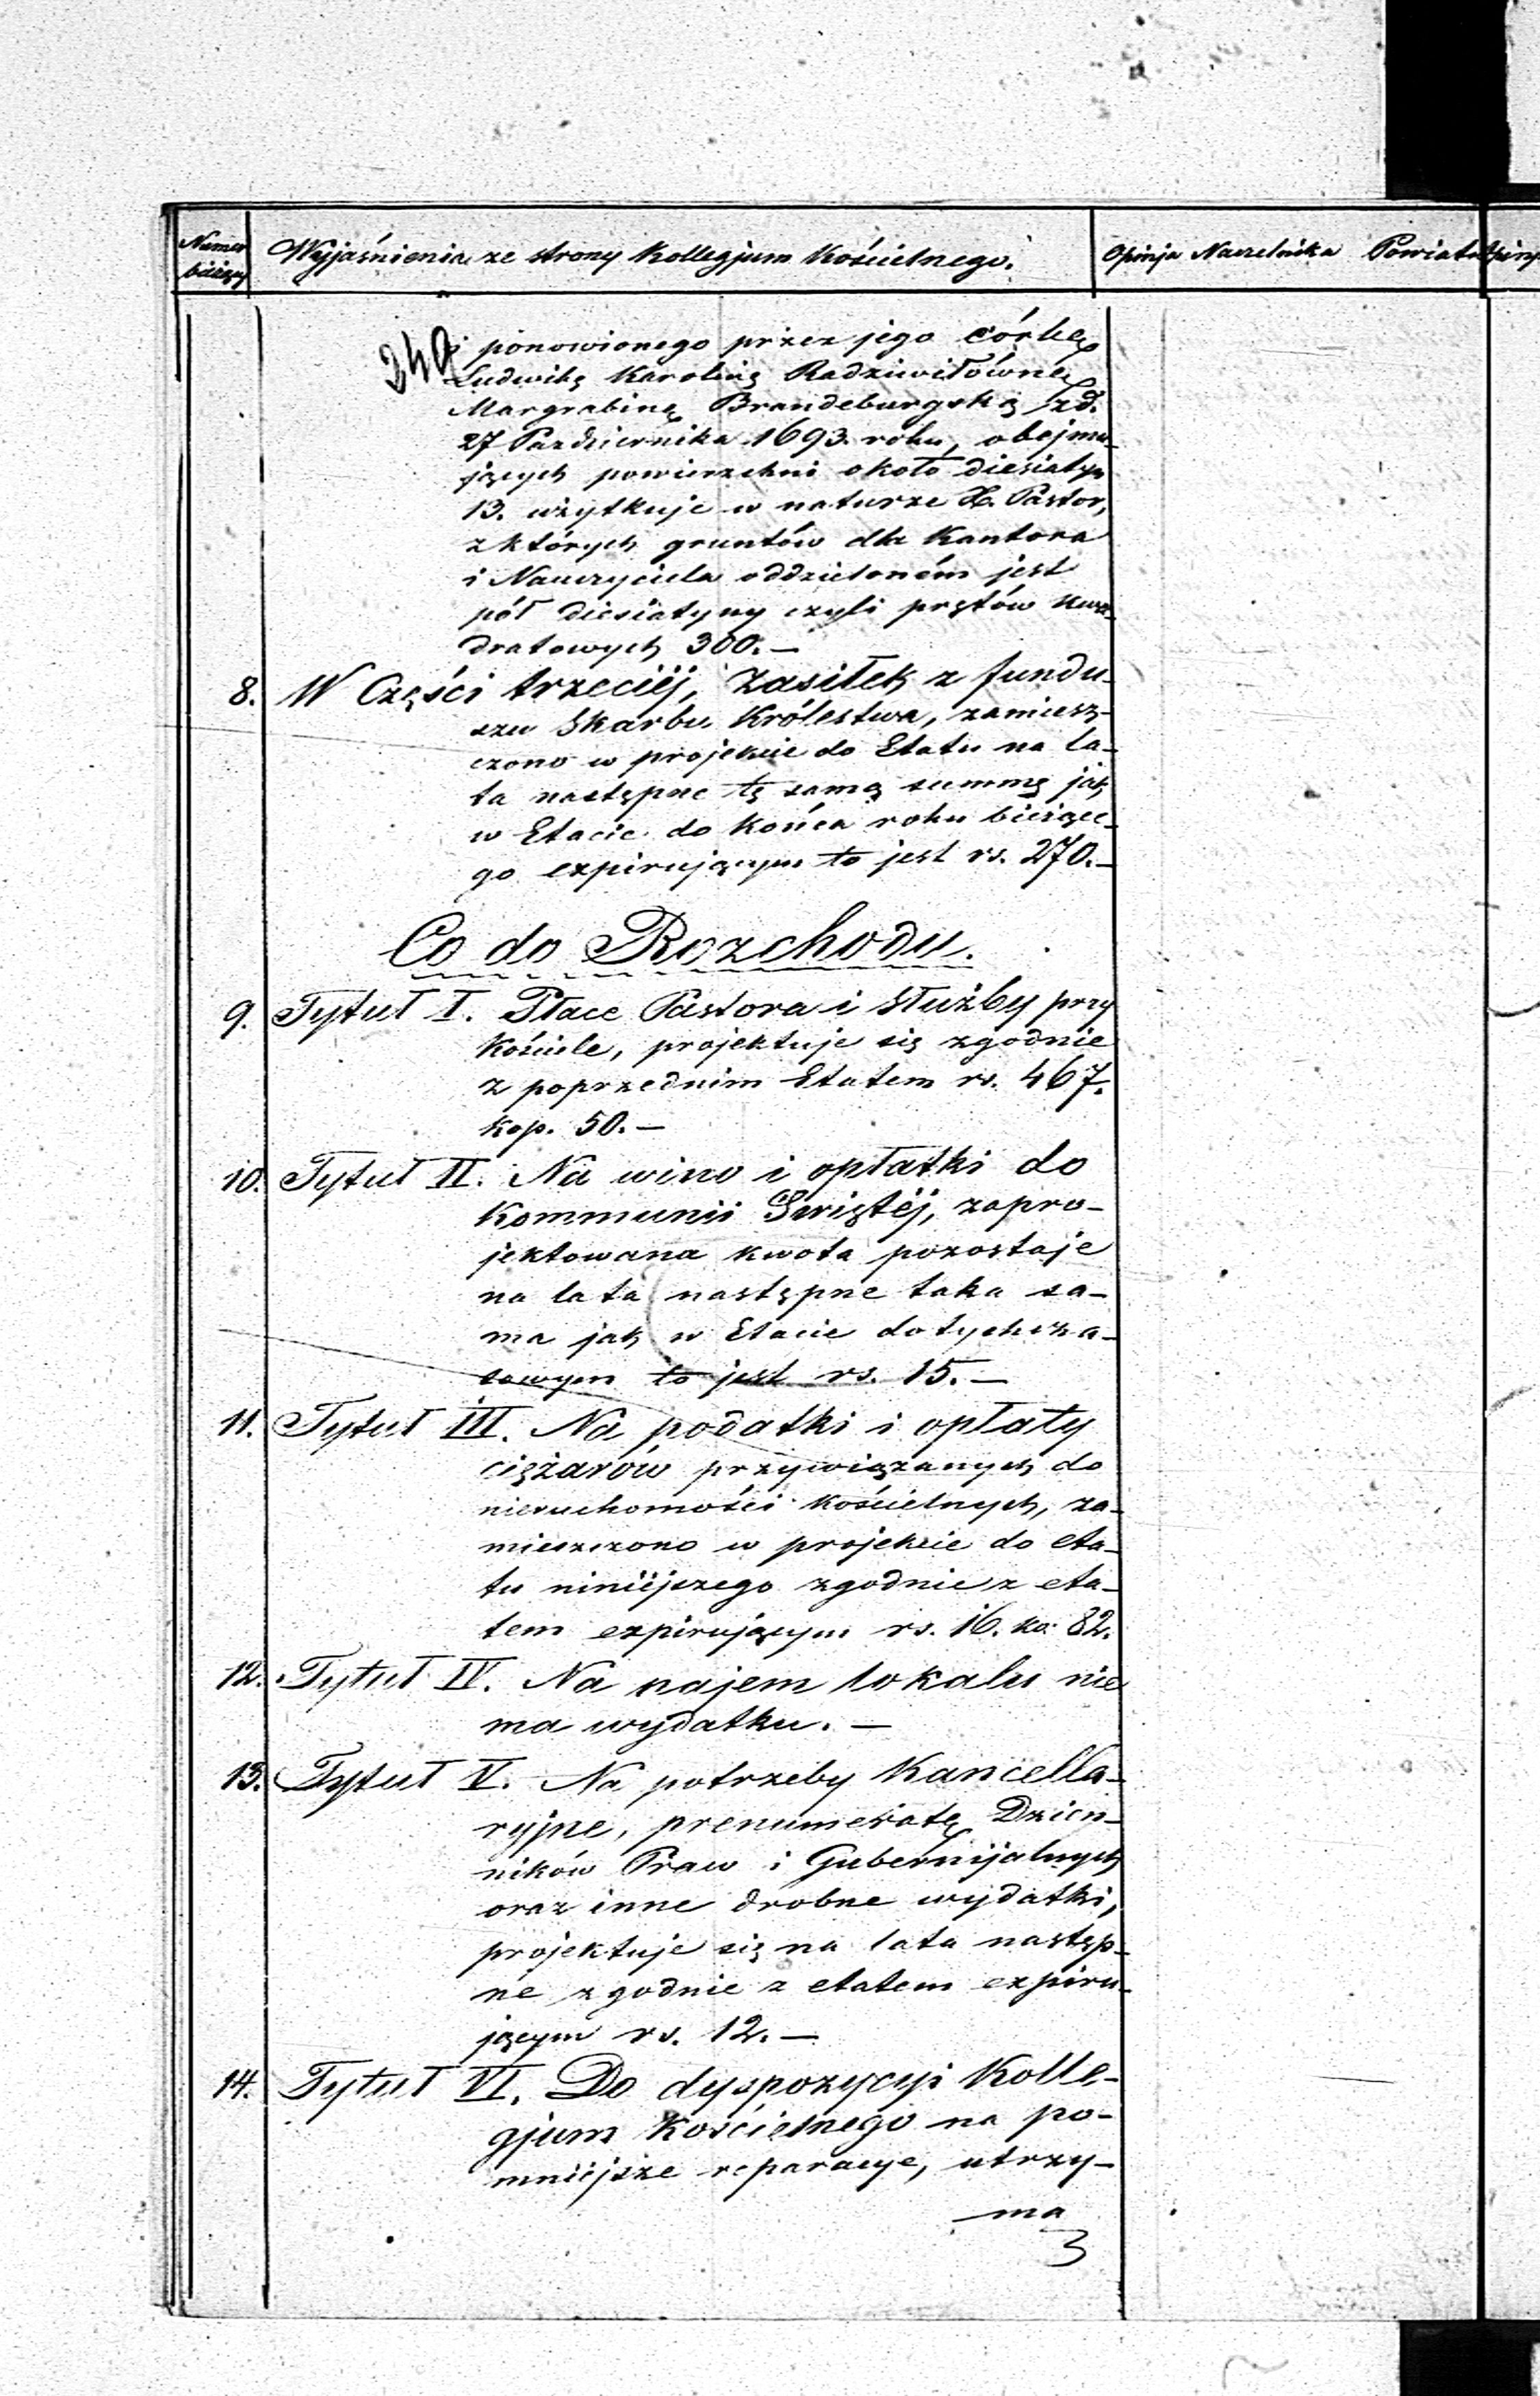 Numer bieżący
Wyjaśnienia ze strony Kollegjum Kościelnego.
Opinja Naczelnika Powiatu
i ponowionego przez jego córkę
Ludwikę Karolinę Radziwiłównę
Margrabinę Brandeburgską zd.
27 Października 1693. roku, obejmu-
jących powierzchni około diesiatyn
13. użytkuje w naturze X. Pastor,
z których gruntów dla Kantora
i Nauczyciela oddzieloném jest
pół diesiatyny czyli prętów kwa-
dratowych 300.—
8. W Części trzeciéj, Zasiłek z fundu-
szu Skarbu Królestwa, zamiesz-
czono w projekcie do Etatu na la-
ta następne tę samą summę jak
w Etacie do końca roku bieżące-
go expirującym to jest rs. 270.—
Co do Rozchodu.
9. Tytuł I. Płace Pastora i służby przy
Kościele, projektuje się zgodnie
z poprzednim Etatem rs. 467.
kop. 50.—
10. Tytuł II. Na wino i opłatki do
Kommunii Świętéj, zapro-
jektowana kwota pozostaje
na lata następne taka sa-
ma jak w Etacie dotychcza-
sowym to jest rs. 15.—
11. Tytuł III. Na podatki i opłaty
ciężarów przywiązanych do
nieruchomości kościelnych, za-
mieszczono w projekcie do eta-
tu niniéjszego zgodnie z eta-
tem expirującym rs. 16. ko: 82.
12. Tytuł IV. Na najem lokalu nie
ma wydatku.—
13. Tytuł V. Na potrzeby Kancella-
ryjne, prenumeratę Dzien-
ników Praw i Gubernijalnych
oraz inne drobne wydatki,
projektuje się na lata następ-
ne zgodnie z etatem expiru-
jącym rs. 12.—
14. Tytuł VI. Do dyspozycyi Kolle-
gjum Kościelnego na po-
mniéjsze reparacye, utrzy-
ma
3